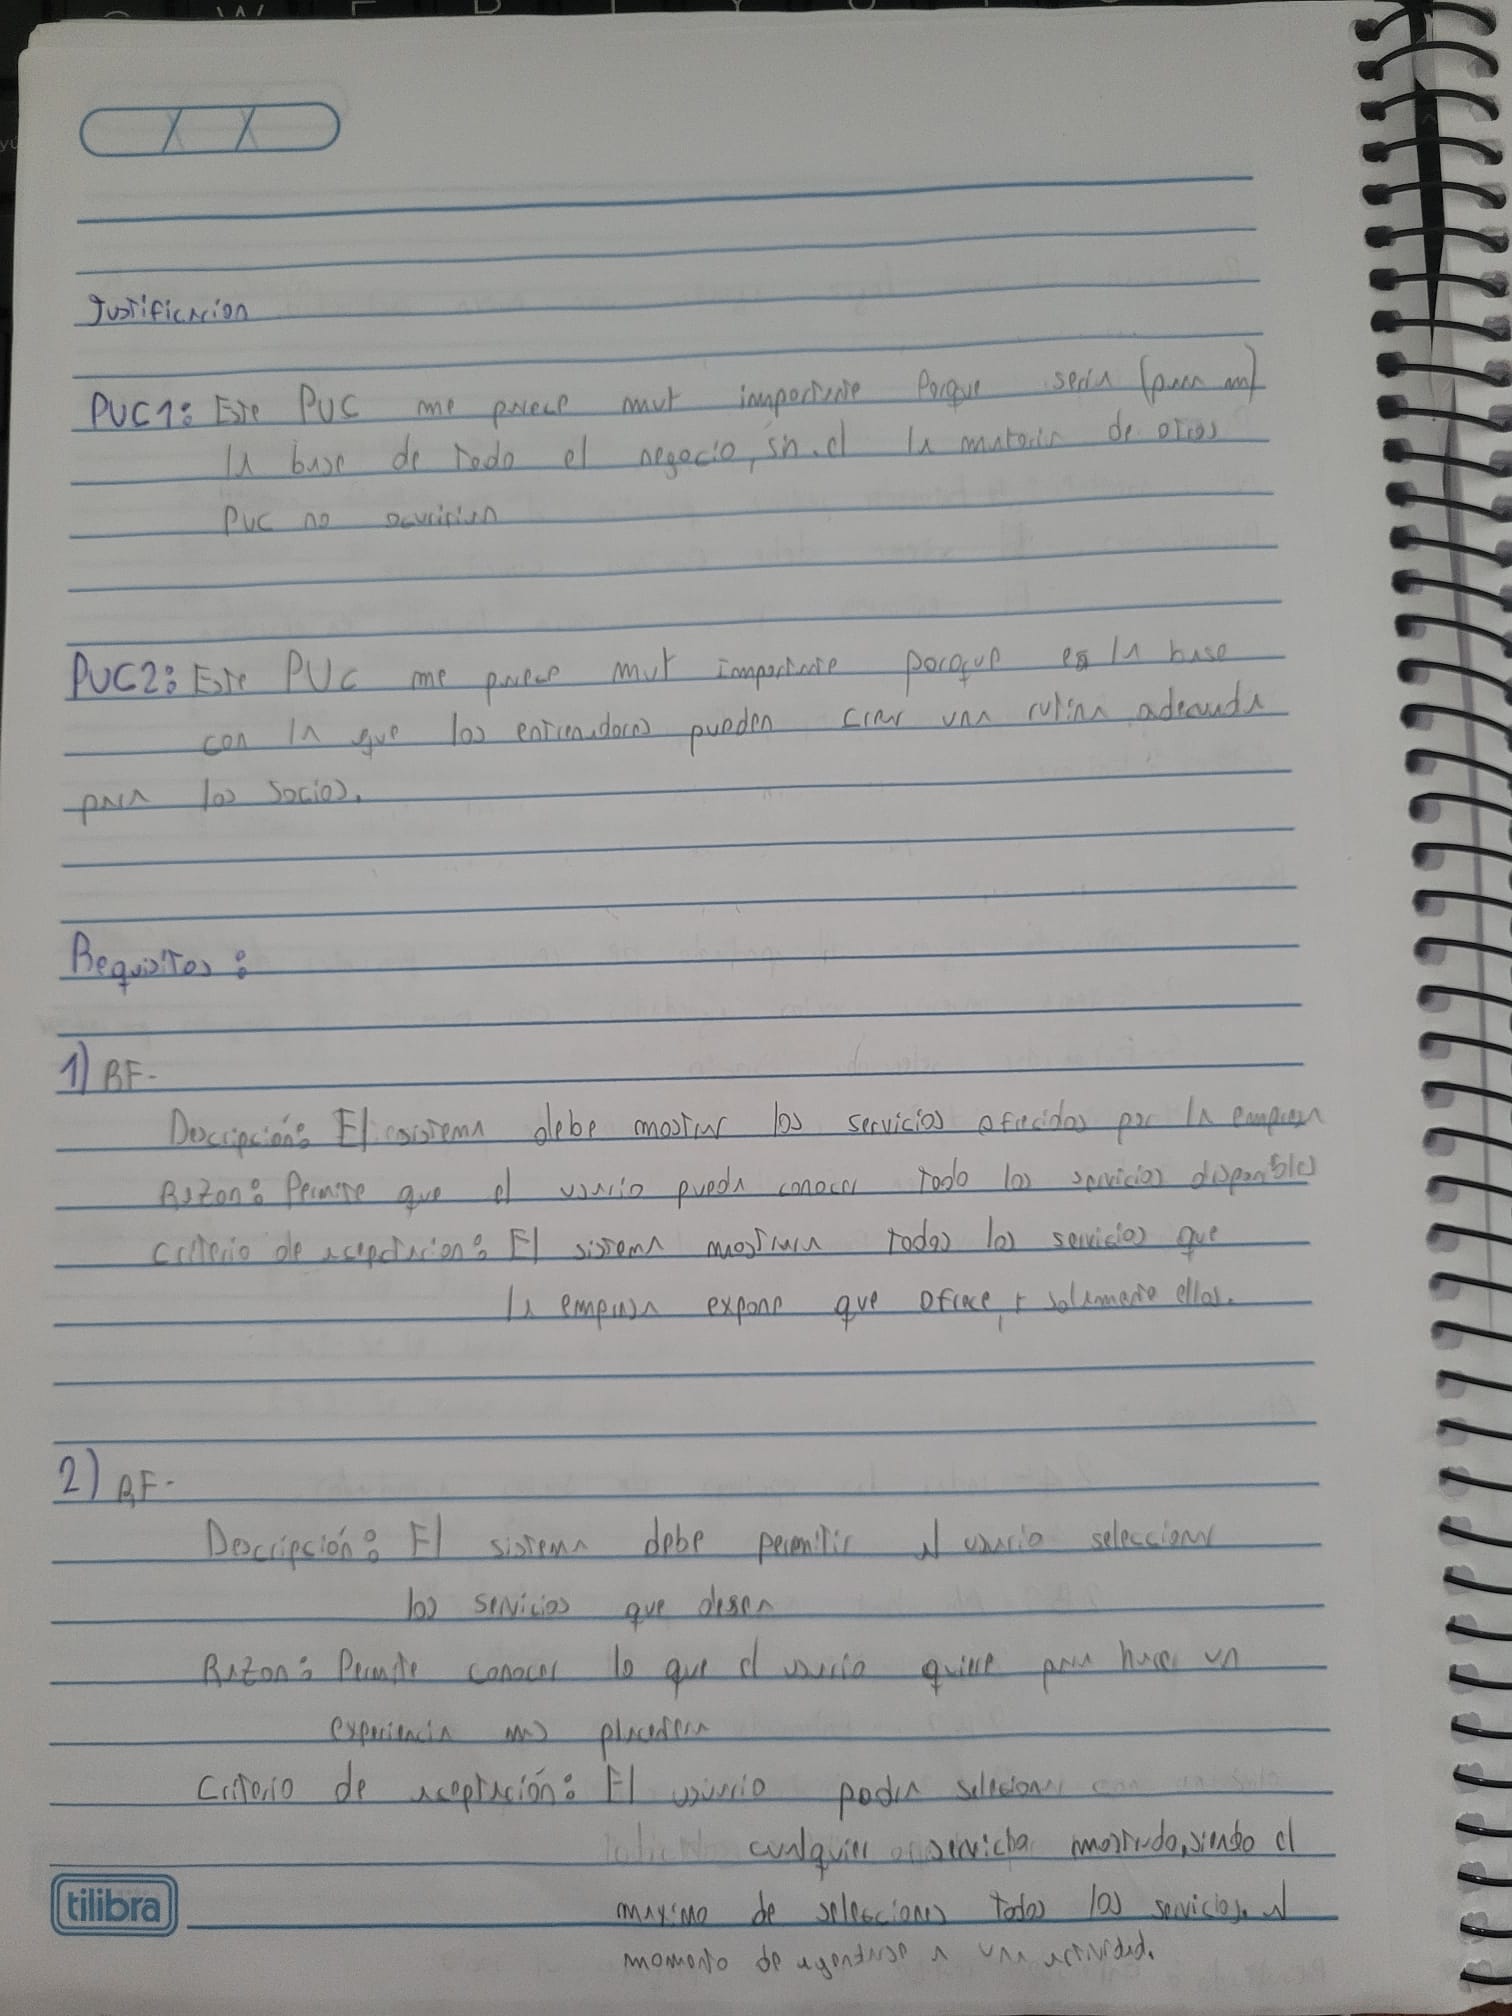 Justificacion
PUC1: Este PUC me parece muy importante Porque seria (para mi)
la base de todo el negocio, sin el la mayoria de otros
PUC no ocuririan
PUC2: Este PUC me parece muy importante porque es la base
con la que los entrenadores pueden crear una rutina adecuada
para los socios.
Requisitos:
1) RF-
Descripción: El sistema debe mostrar los servicios ofrecidos por la empresa
Razon: Permite que el usuario pueda conocer todo los servicios disponibles
Criterio de aceptacion: El sistema mostrara todos los servicios que
la empresa expone que ofrece, y solamente ellos.
2) RF-
Descripción: El sistema debe permitir al usuario seleccionar
los servicios que desea
Razon: Permite conocer lo que el usuario quiere para hacer un
experiencia mas placentera
Criterio de aceptación: El usuario podra selecionar
cualquier servicio mostrado, siendo el
maximo de selecciones todos los servicios. al
momento de agendarse a una actividad.
tilibra